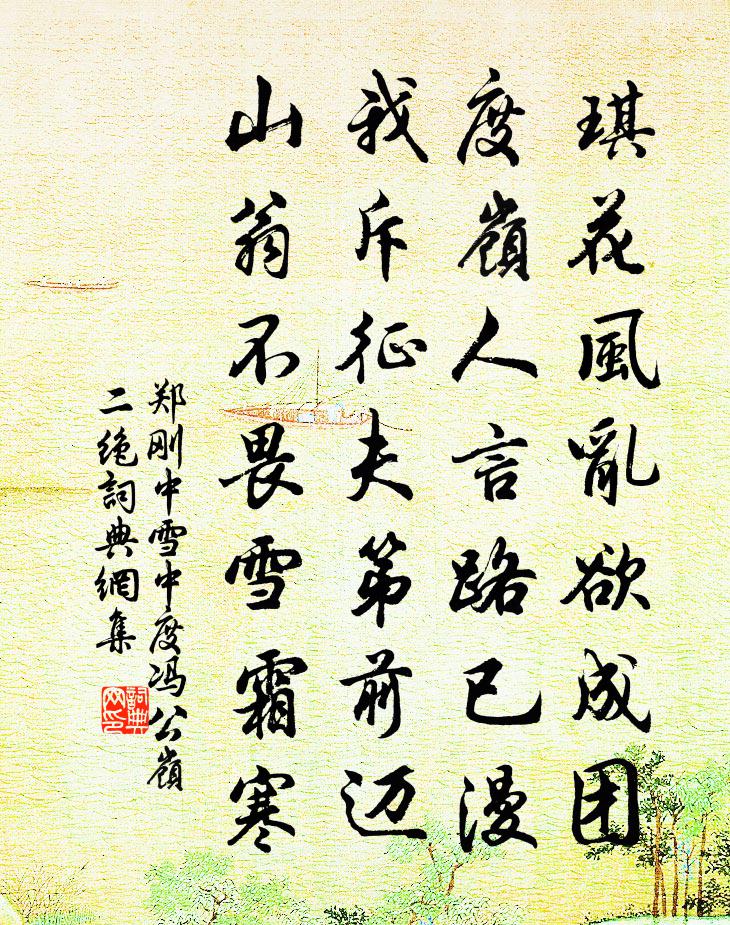 琪花風亂欲成团
度嶺人言路已漫
我斥征夫第前迈
山翁不畏雪霜寒
郑刚中雪中度冯公嶺
二绝詞典網集
詞典
网印